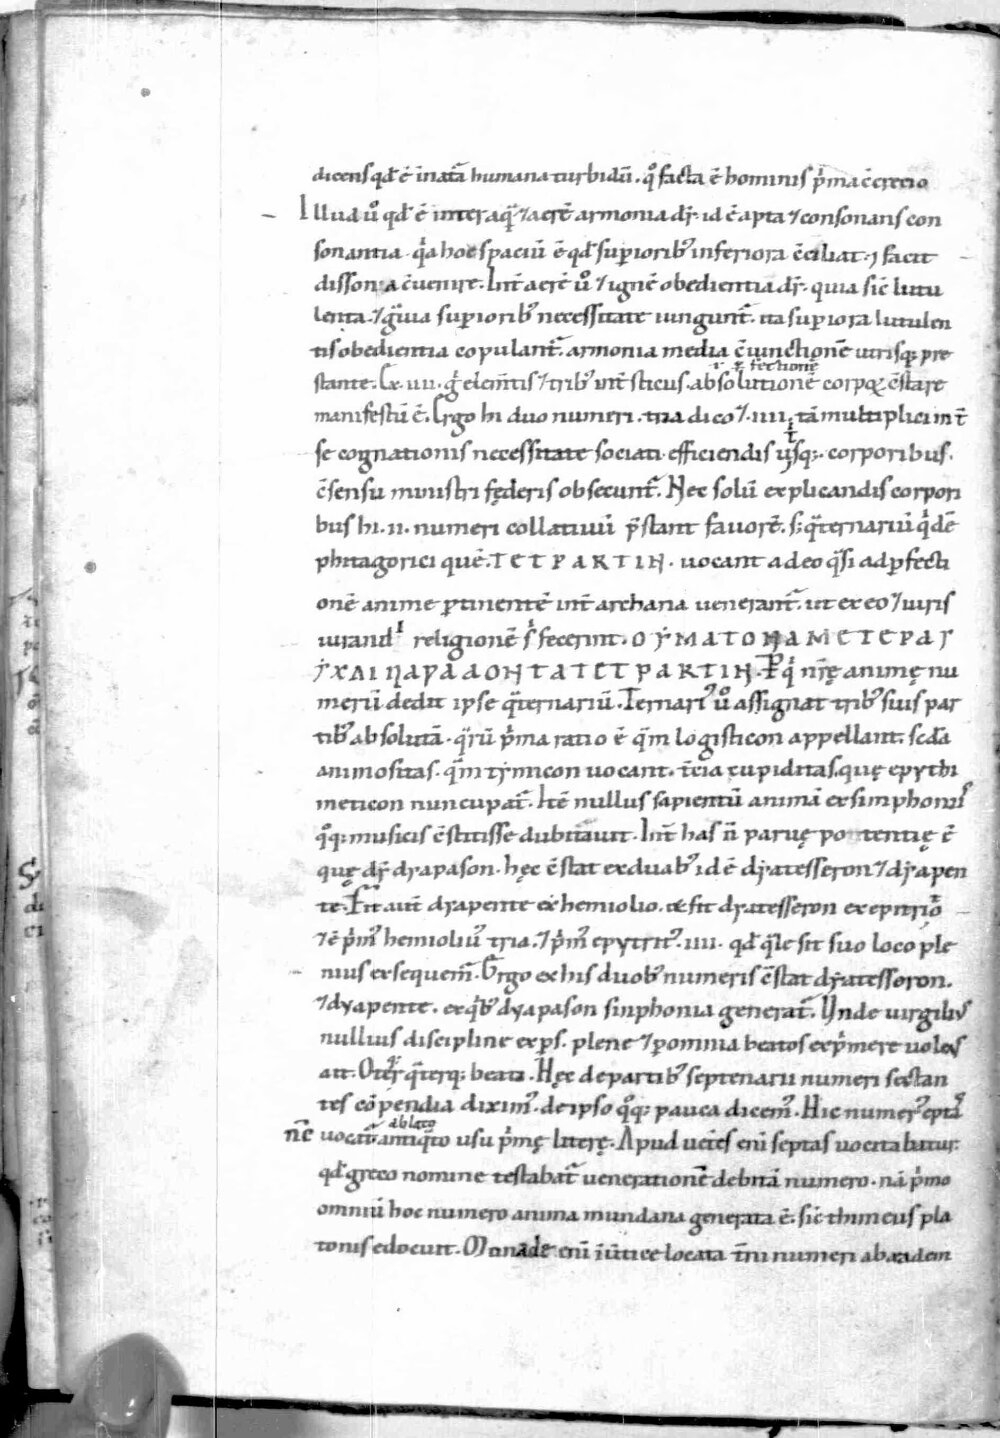 dicens qđ ē̄ in natā humana turbidū. qͦ facta ē hominis p̾ma c̄cretio
Illud uͦ qđ ē inter aquā ⁊ aerē armonia dr̄. id ē apta ⁊ consonans con
sonantia. qa hoc spaciū ē qđ superiorib; inferiora c̄ciliat. ⁊ facit
dissona c̄uenire. Int̄ aerē uͦ ⁊ ignē obedientia dr̄. quia sic̄ lutu
lenta. ⁊ grauia superiorib; necessitate iungunt̄. ita superiora lutulen
tis obedientia copulant̄. armonia media c̄iunctionē utrisq; pre
.i. ꝑfectionē
stante. Ex .iiii. g̾ elem̄tis ⁊ trib; int̄sticiis. absolutionē corpoꝝ c̄stare
manifestū ē. Ergo hi duo numeri. tria dico ⁊ .iiii. tā multiplici int̄
se cognationis necessitate sociati. efficiendis utrisq;. corporibus.
c̄sensu ministri fęderis obsecunt̄. Nec solū explicandis corpori
bus hi .ii. numeri collatiuū p̄stant fauorē. s; q̄ternariū qͥdē
phitagorici quē. TETPARTIN. uocant adeo q̄si ad ꝑfecti
onē anime ꝑtinentē int̄ archana uenerant̄. ut ex eo ⁊ iuris
iurandi religionē sͥ fecerint. OYMATONAMETEPAΓ
YXΛIΠAPAΔONTATETPARTIN. Per qͥ nrę̄ animę nu
merū dedit ipse q̄ternariū. Ternariꝰ uͦ assignat trib; suis par
tib; absolutā. q̄rū p̾ma ratio ē q̄m logisticon appellant. scđa
animositas. q̄m tymicon uocant. t̄cia cupiditas. quę epythi
meticon nuncupat̄. Itē nullus sapientū animā ex simphoniis
qͦq; musicis c̄stitisse dubitauit. Int̄ has n̄ paruę potentię ē
quę dr̄ dyapason. hęc c̄stat ex duab; id ē dyatesseron ⁊ dyapen
te. Fit aut̄ dyapente ex hemiolio. et fit dyatesseron ex epitrito
⁊ ē p̾mꝰ hemioliꝰ tria. ⁊ p̾mꝰ epytritꝰ .iiii. qđ q̄le sit suo loco ple
nius exsequem̄. Ergo ex his duob; numeris c̄stat dyatesseron.
⁊ dyapente. ex qͥb; dyapason sinphonia generat̄. Unde uirgilius
nullius discipline exꝑs. plene ⁊ ꝑ omnia beatos exp̾mere uolens
ait. O terq̄; q̄terq; beati. Hęc de partib; septenarii numeri sectan
tes cōpendia diximꝰ. de ipso qͦq; pauca dicemꝰ. Hic numerꝰ epta
ablato
nc̄ uocat̄ antiqͦ usu p̾mę literę. Apud uet̄es eni septas uocitabatur.
qđ greco nomine testabat̄ uenerationē debitā numero. nā p̾mo
omniū hoc numero anima mundana generata ē. sic̄ thimeus pla
tonis edocuit. Monade enī in ūtice locata t̄ni numeri ab eadem